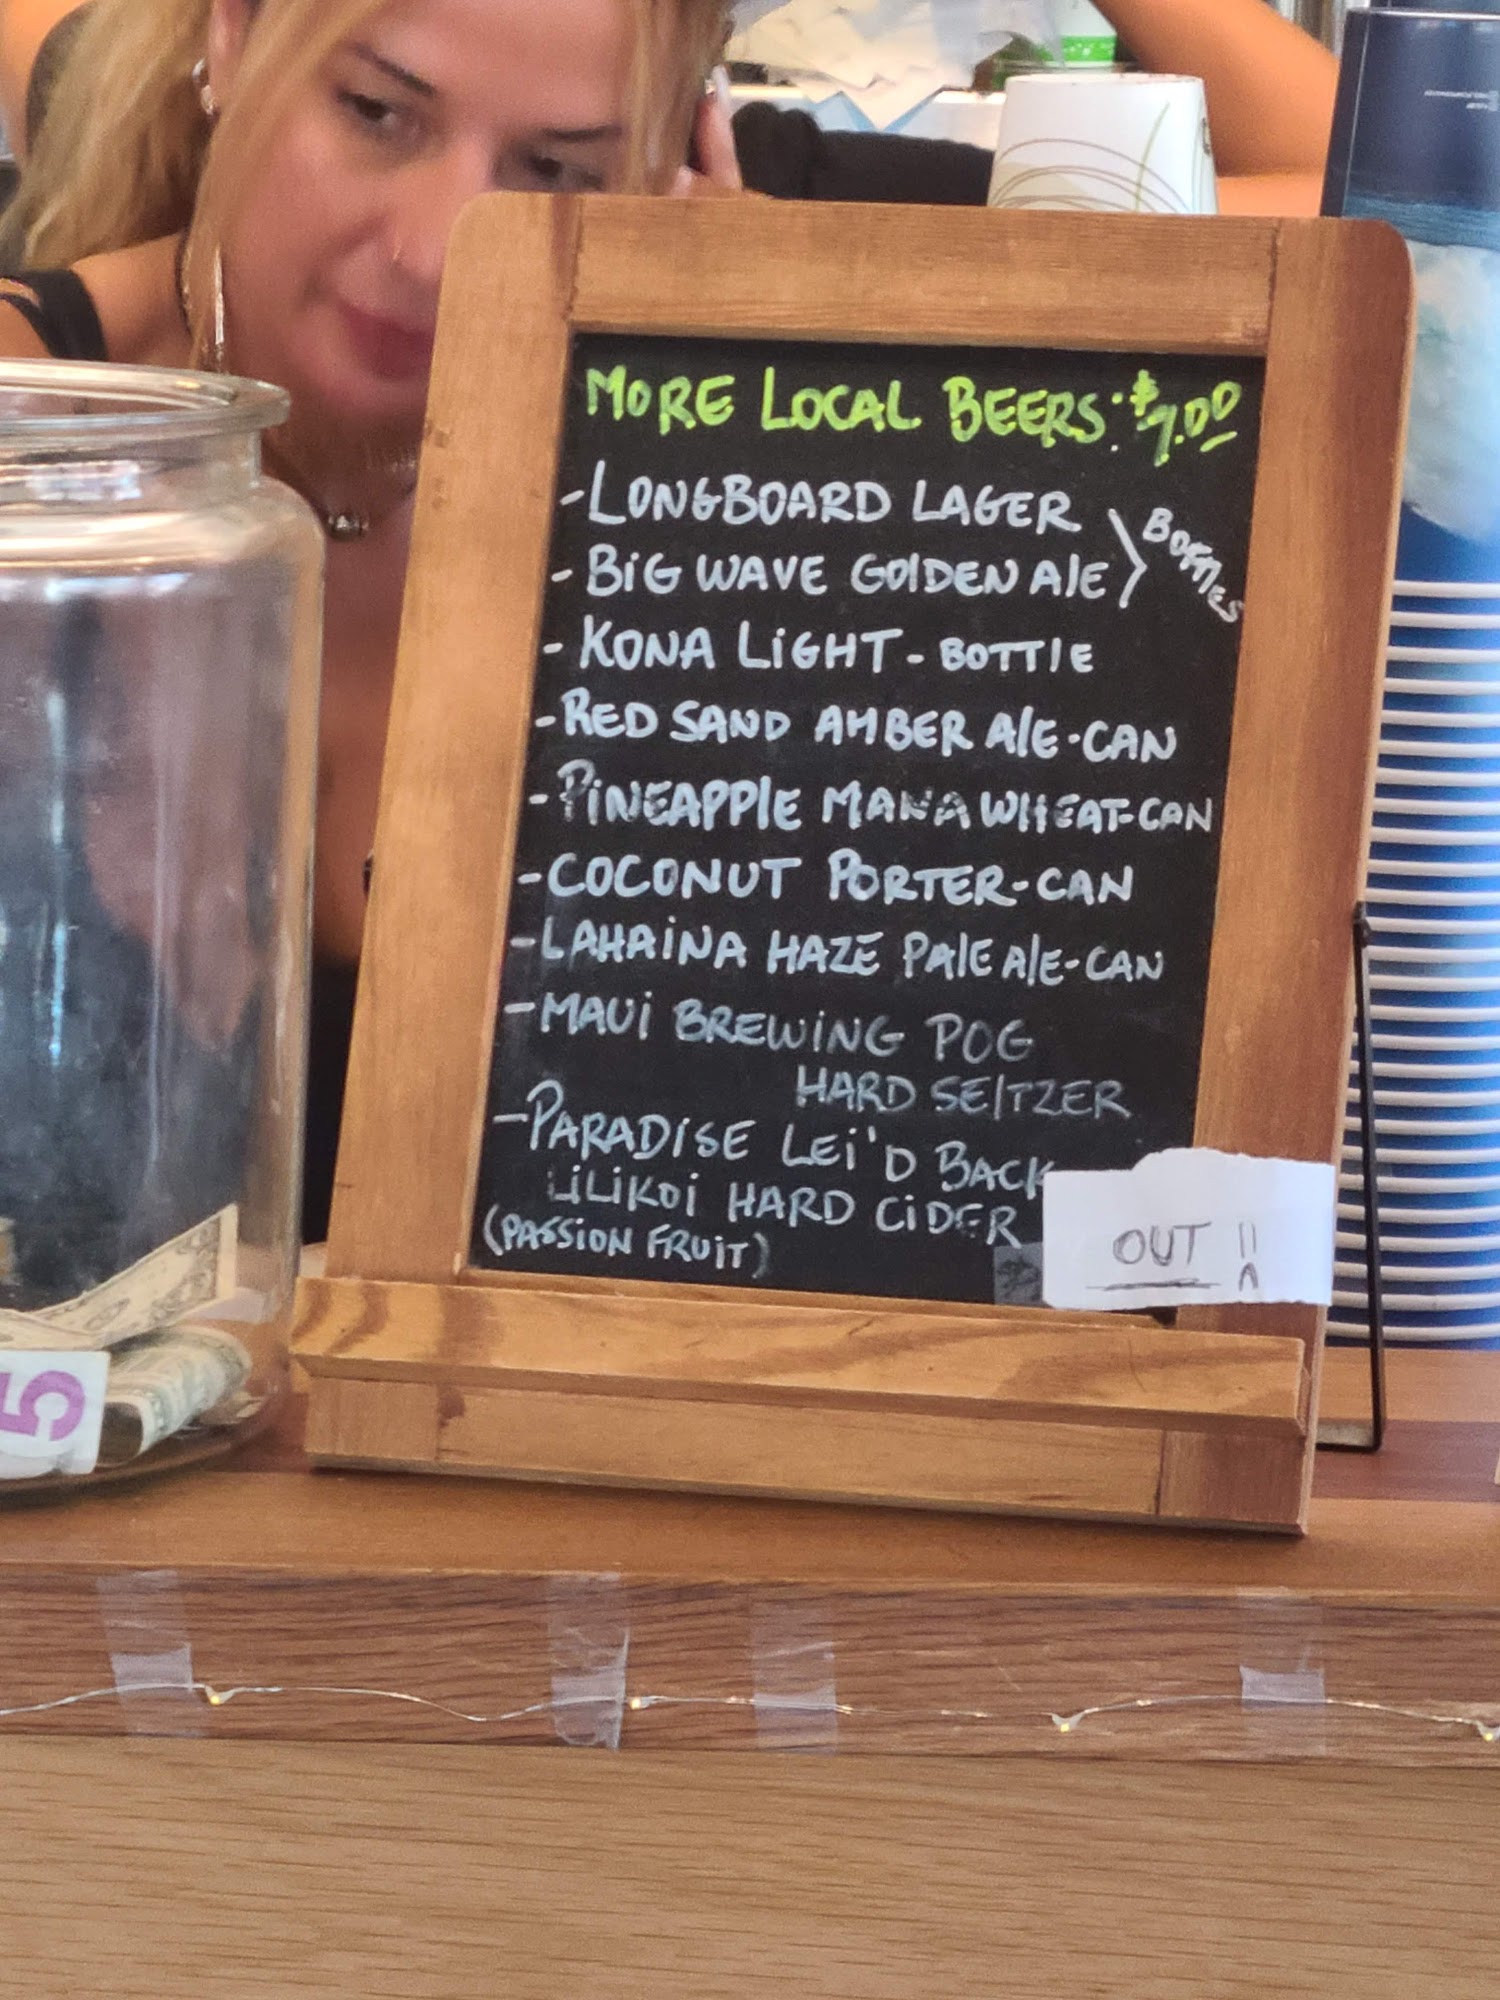 MORE LOCAL BEERS: $7.00
- LONGBOARD LAGER
- BIG WAVE GOLDEN ALE
BOTTLES
- KONA LIGHT - BOTTLE
- RED SAND AMBER ALE - CAN
- PINEAPPLE MANA WHEAT - CAN
- COCONUT PORTER - CAN
- LAHAINA HAZE PALE ALE - CAN
- MAUI BREWING POG
HARD SELTZER
- PARADISE LEI'D BACK
LILIKOI HARD CIDER
(PASSION FRUIT)
OUT !!
5